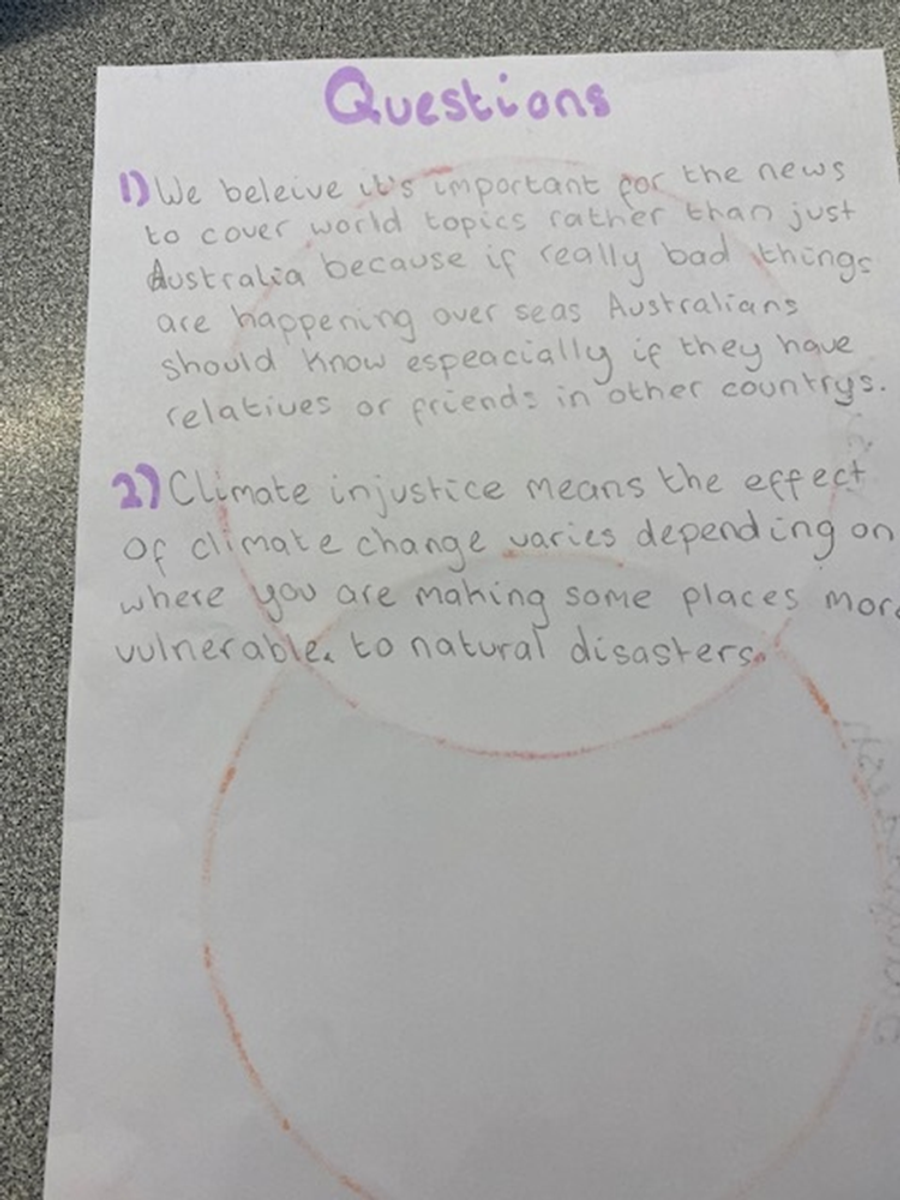 Questions
1) We beleive it's important for the news
to cover world topics rather than just
Australia because if really bad things
are happening over seas Australians
should know espeacially if they have
relatives or friends in other countrys.
2) Climate injustice means the effect
of climate change varies depending on
where you are making some places more
vulnerable. to natural disasters.